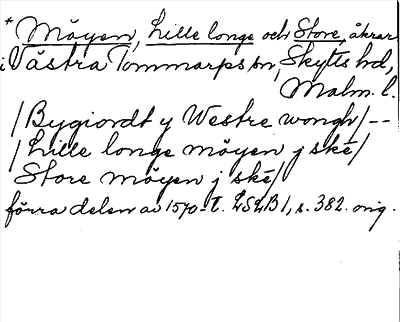 * Möyen, Lille longe och Store, åkrar
i Västra Tommarps sn, Skytts hd,
Malm. l.
/Bygiordt y Westre wongh/--
/Lille longe möyen j ské/
Store möyen j ské/
förra delen av 1570-t. LSLB1, s. 382. orig.